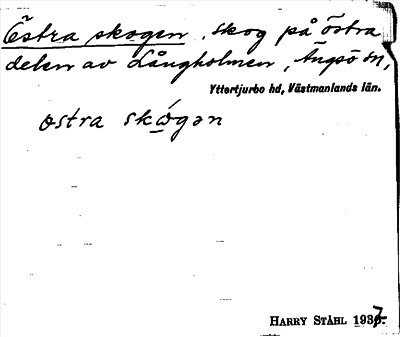 Östra skogen, skog på östra
delen av Långholmen, Ängsö sn,
Yttertjurbo hd, Västmanlands län.
östra skó̲gən
HARRY STÅHL 1937.